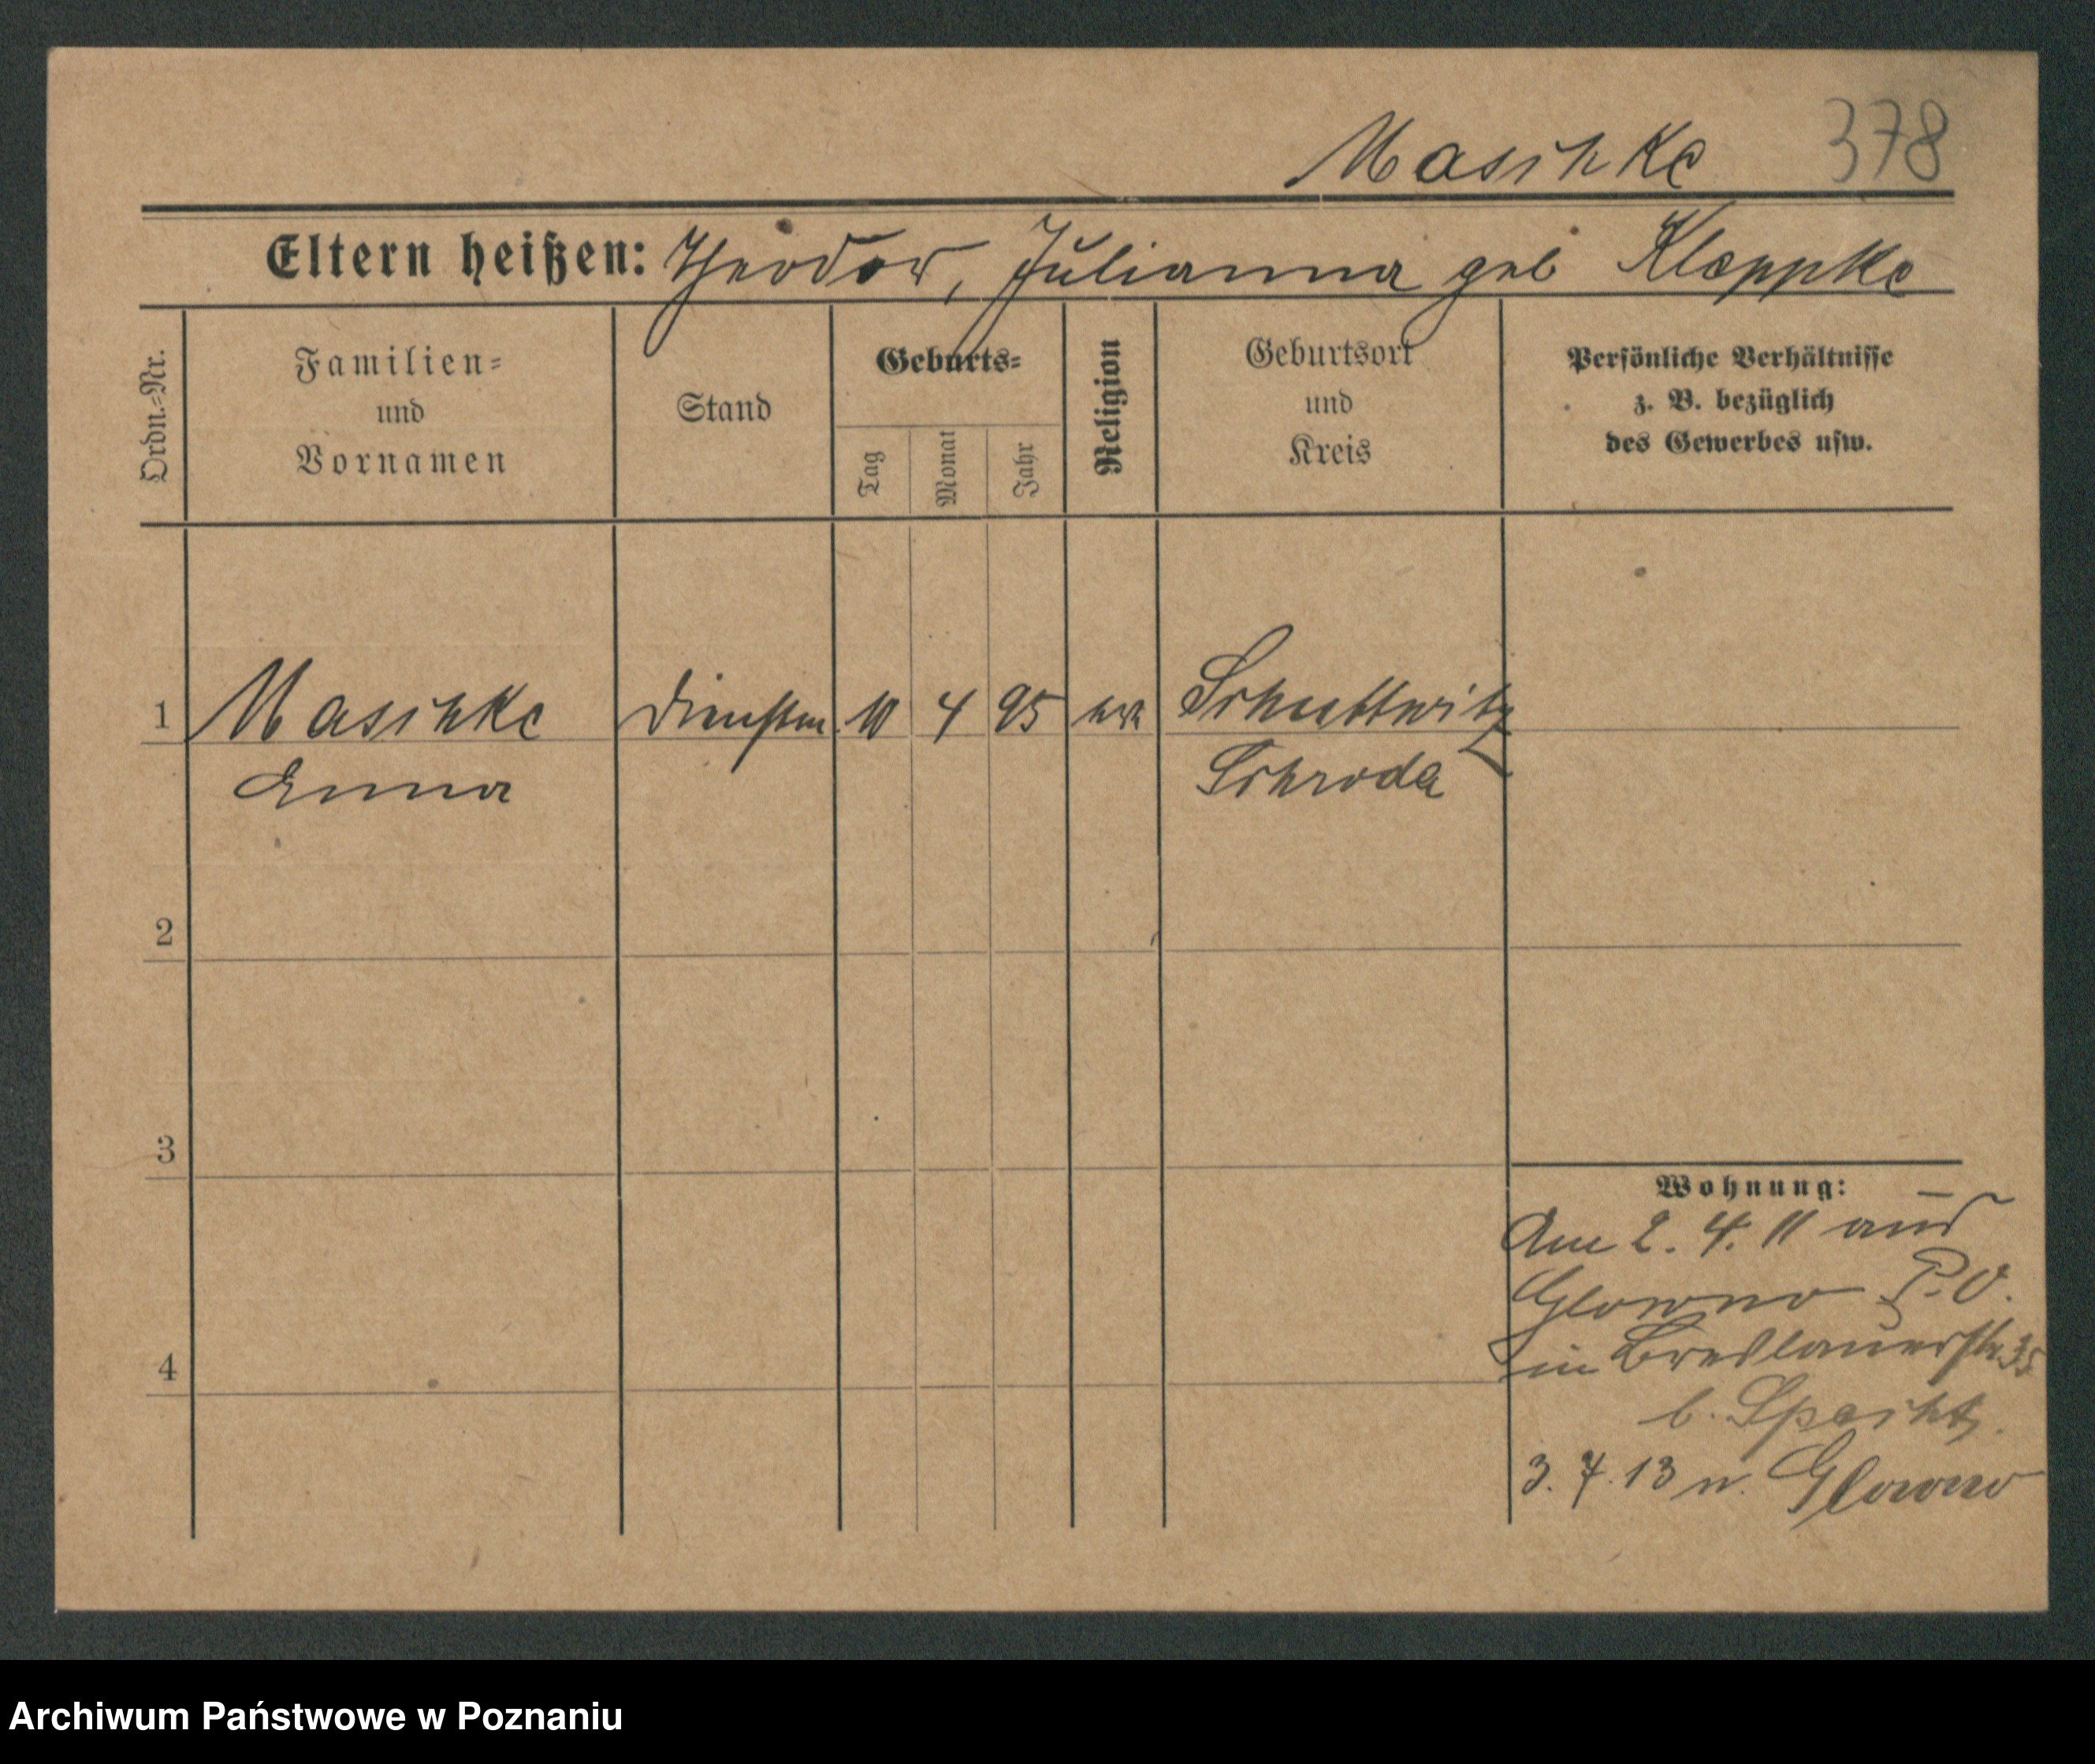 Maschke 378
Eltern heißen: Theodor, Julianna geb Kleppke
Ordn.=Nr.
Familien=
und
Vornamen
Stand
Geburts=
Tag
Monat
Jahr
Religion
Geburtsort
und
Kreis
Persönliche Verhältnisse
z. B. bezüglich
des Gewerbes usw.
1 Maschke 10 4 95
Emma Schroda
2
3
4
Wohnung:
Am 2. 4. 11 aus
Glowno P. O.
in Breslauerstr 35
b. Specht
3. 7. 13 n. Glowno
Archiwum Państwowe w Poznaniu